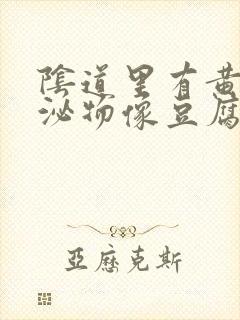 陰道里有黃
泌物像豆腐
亞歷克斯